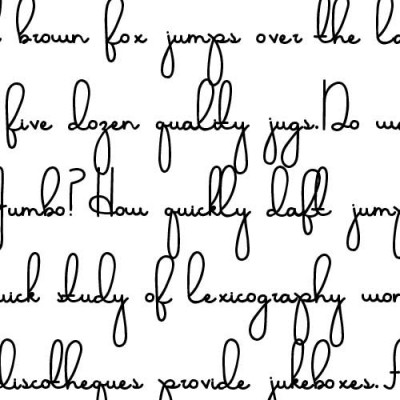 brown fox jumps over the la
five dozen quality jugs.Do w
Jumbo? How quickly daft jump
uick study of lexicography won
discotheques provide jukeboxes.